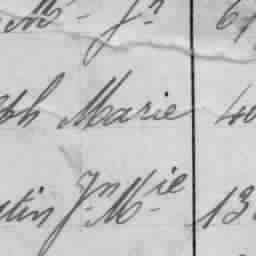 M- Jn 6
ph Marie 40
tin Jn- Mie- 13